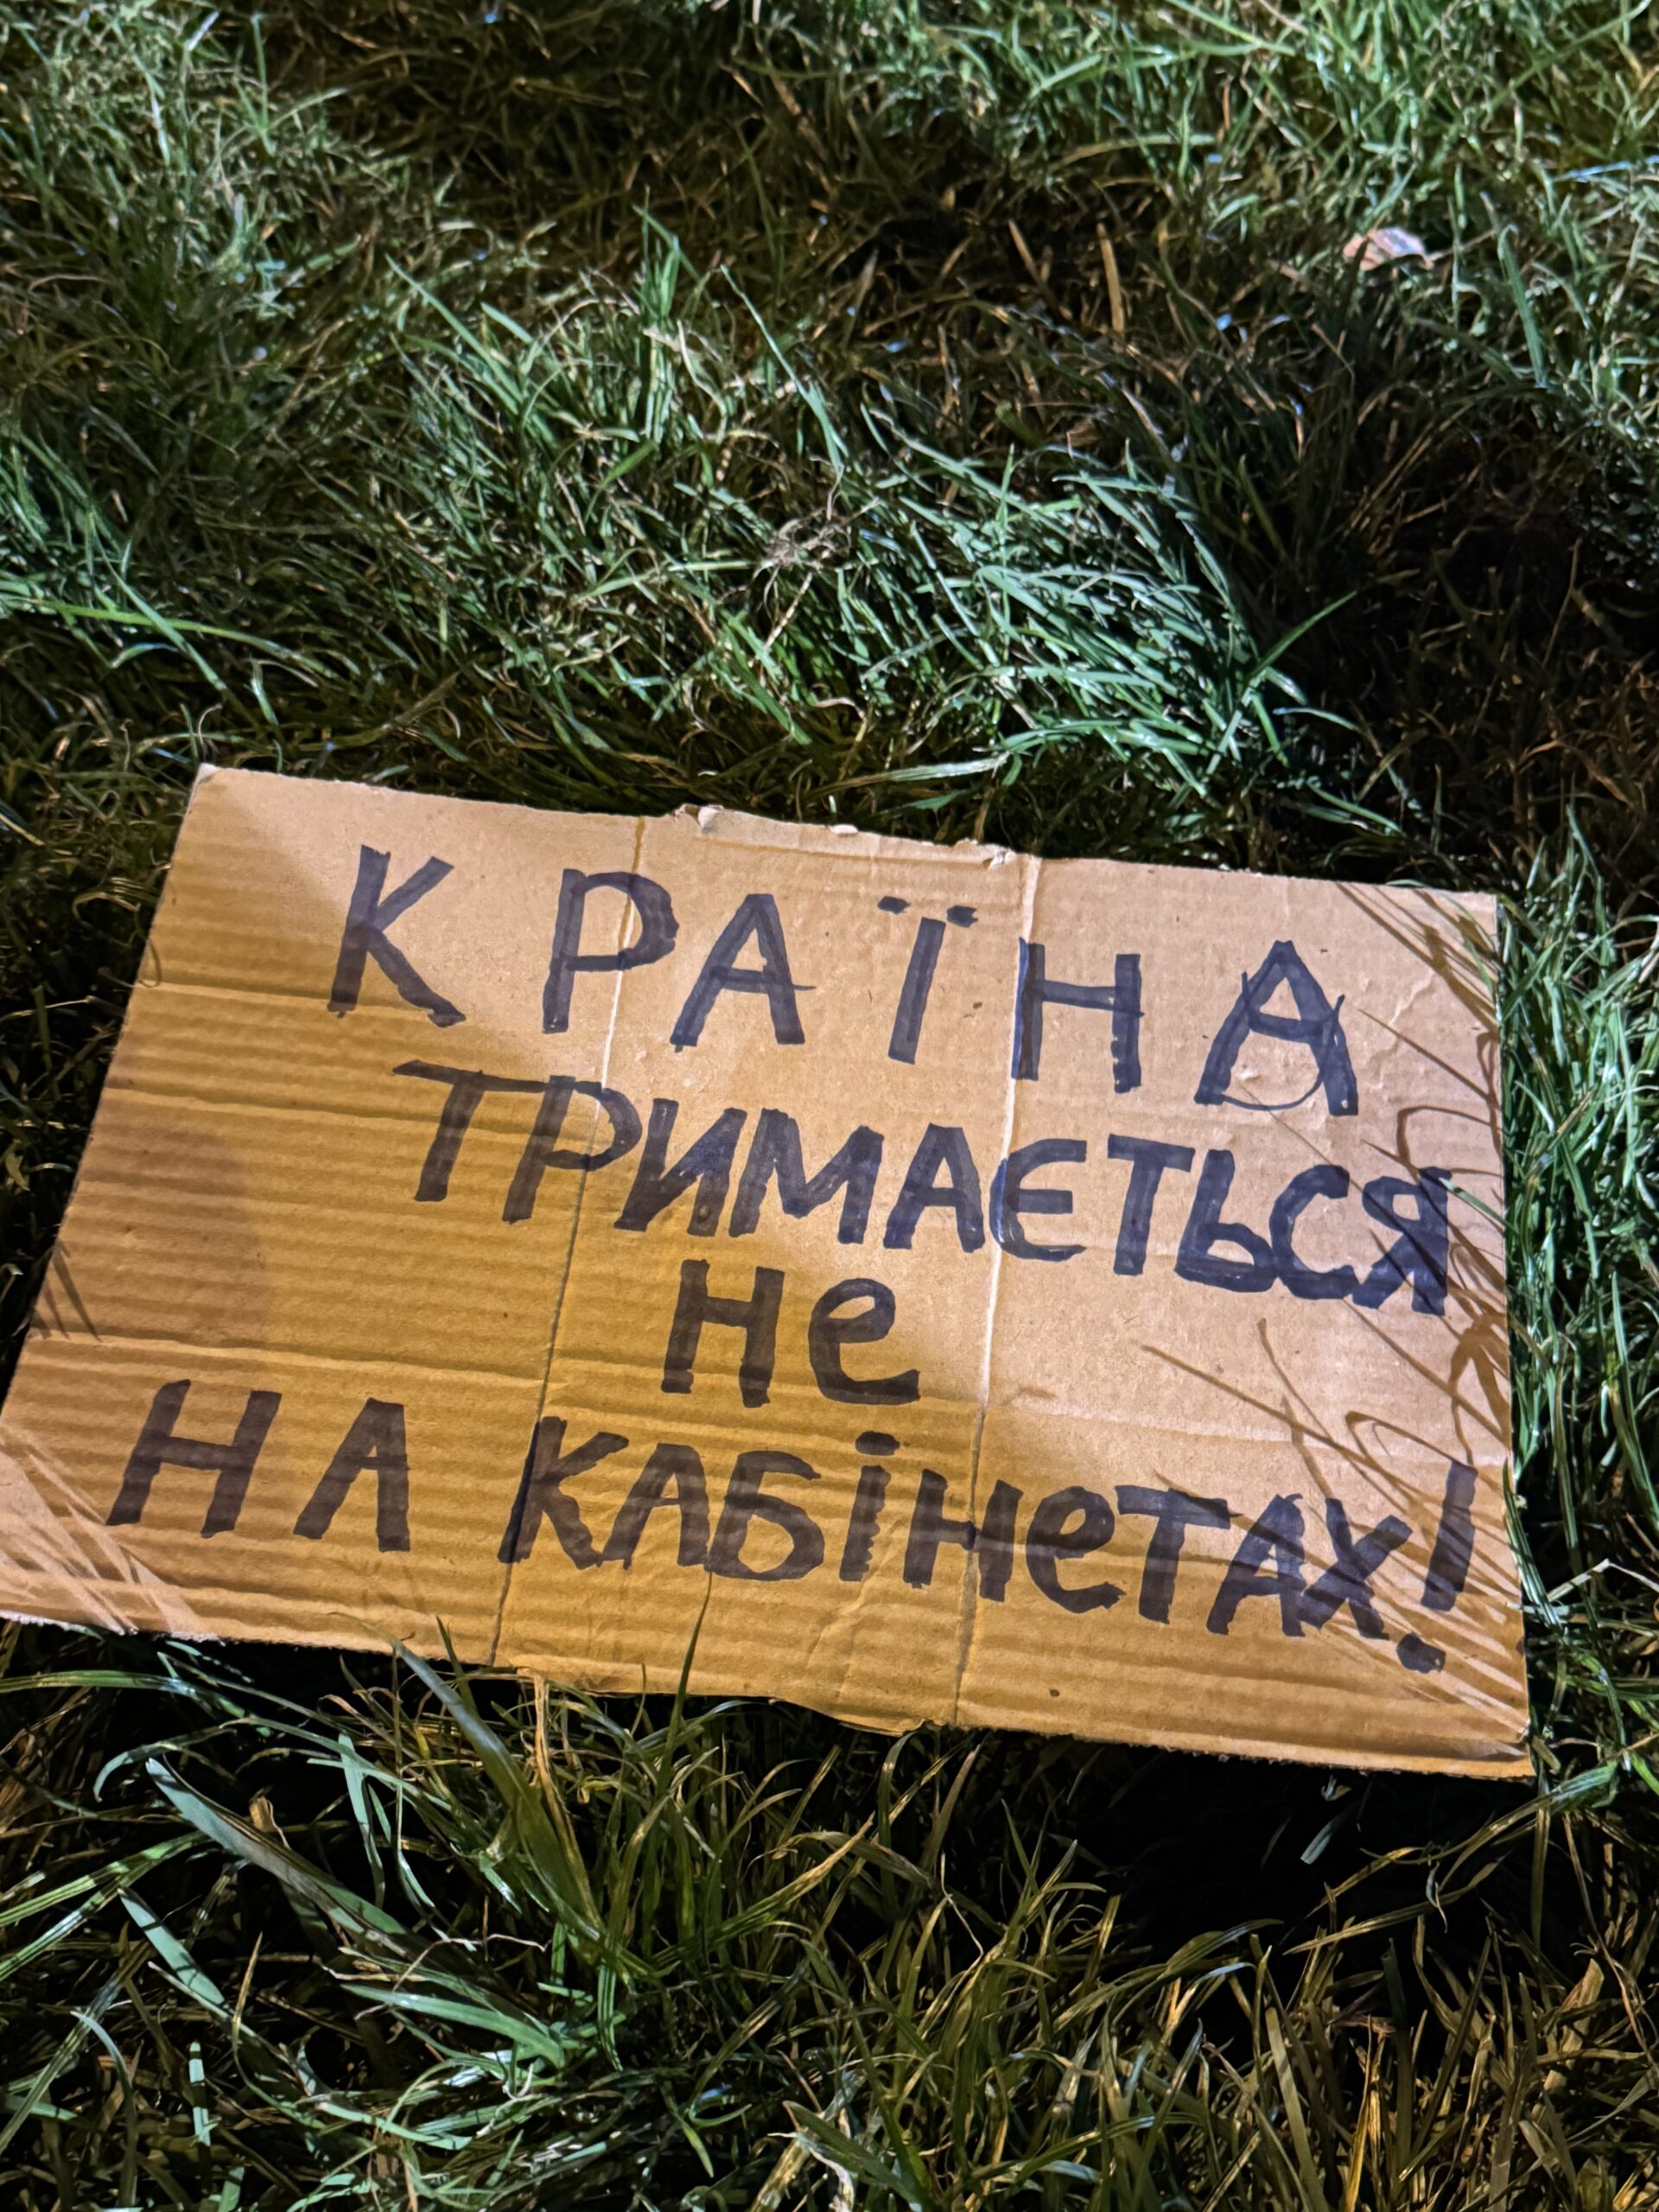 КРАЇНА
ТРИМАЄТЬСЯ
Не
НА КАБіНеТАХ!